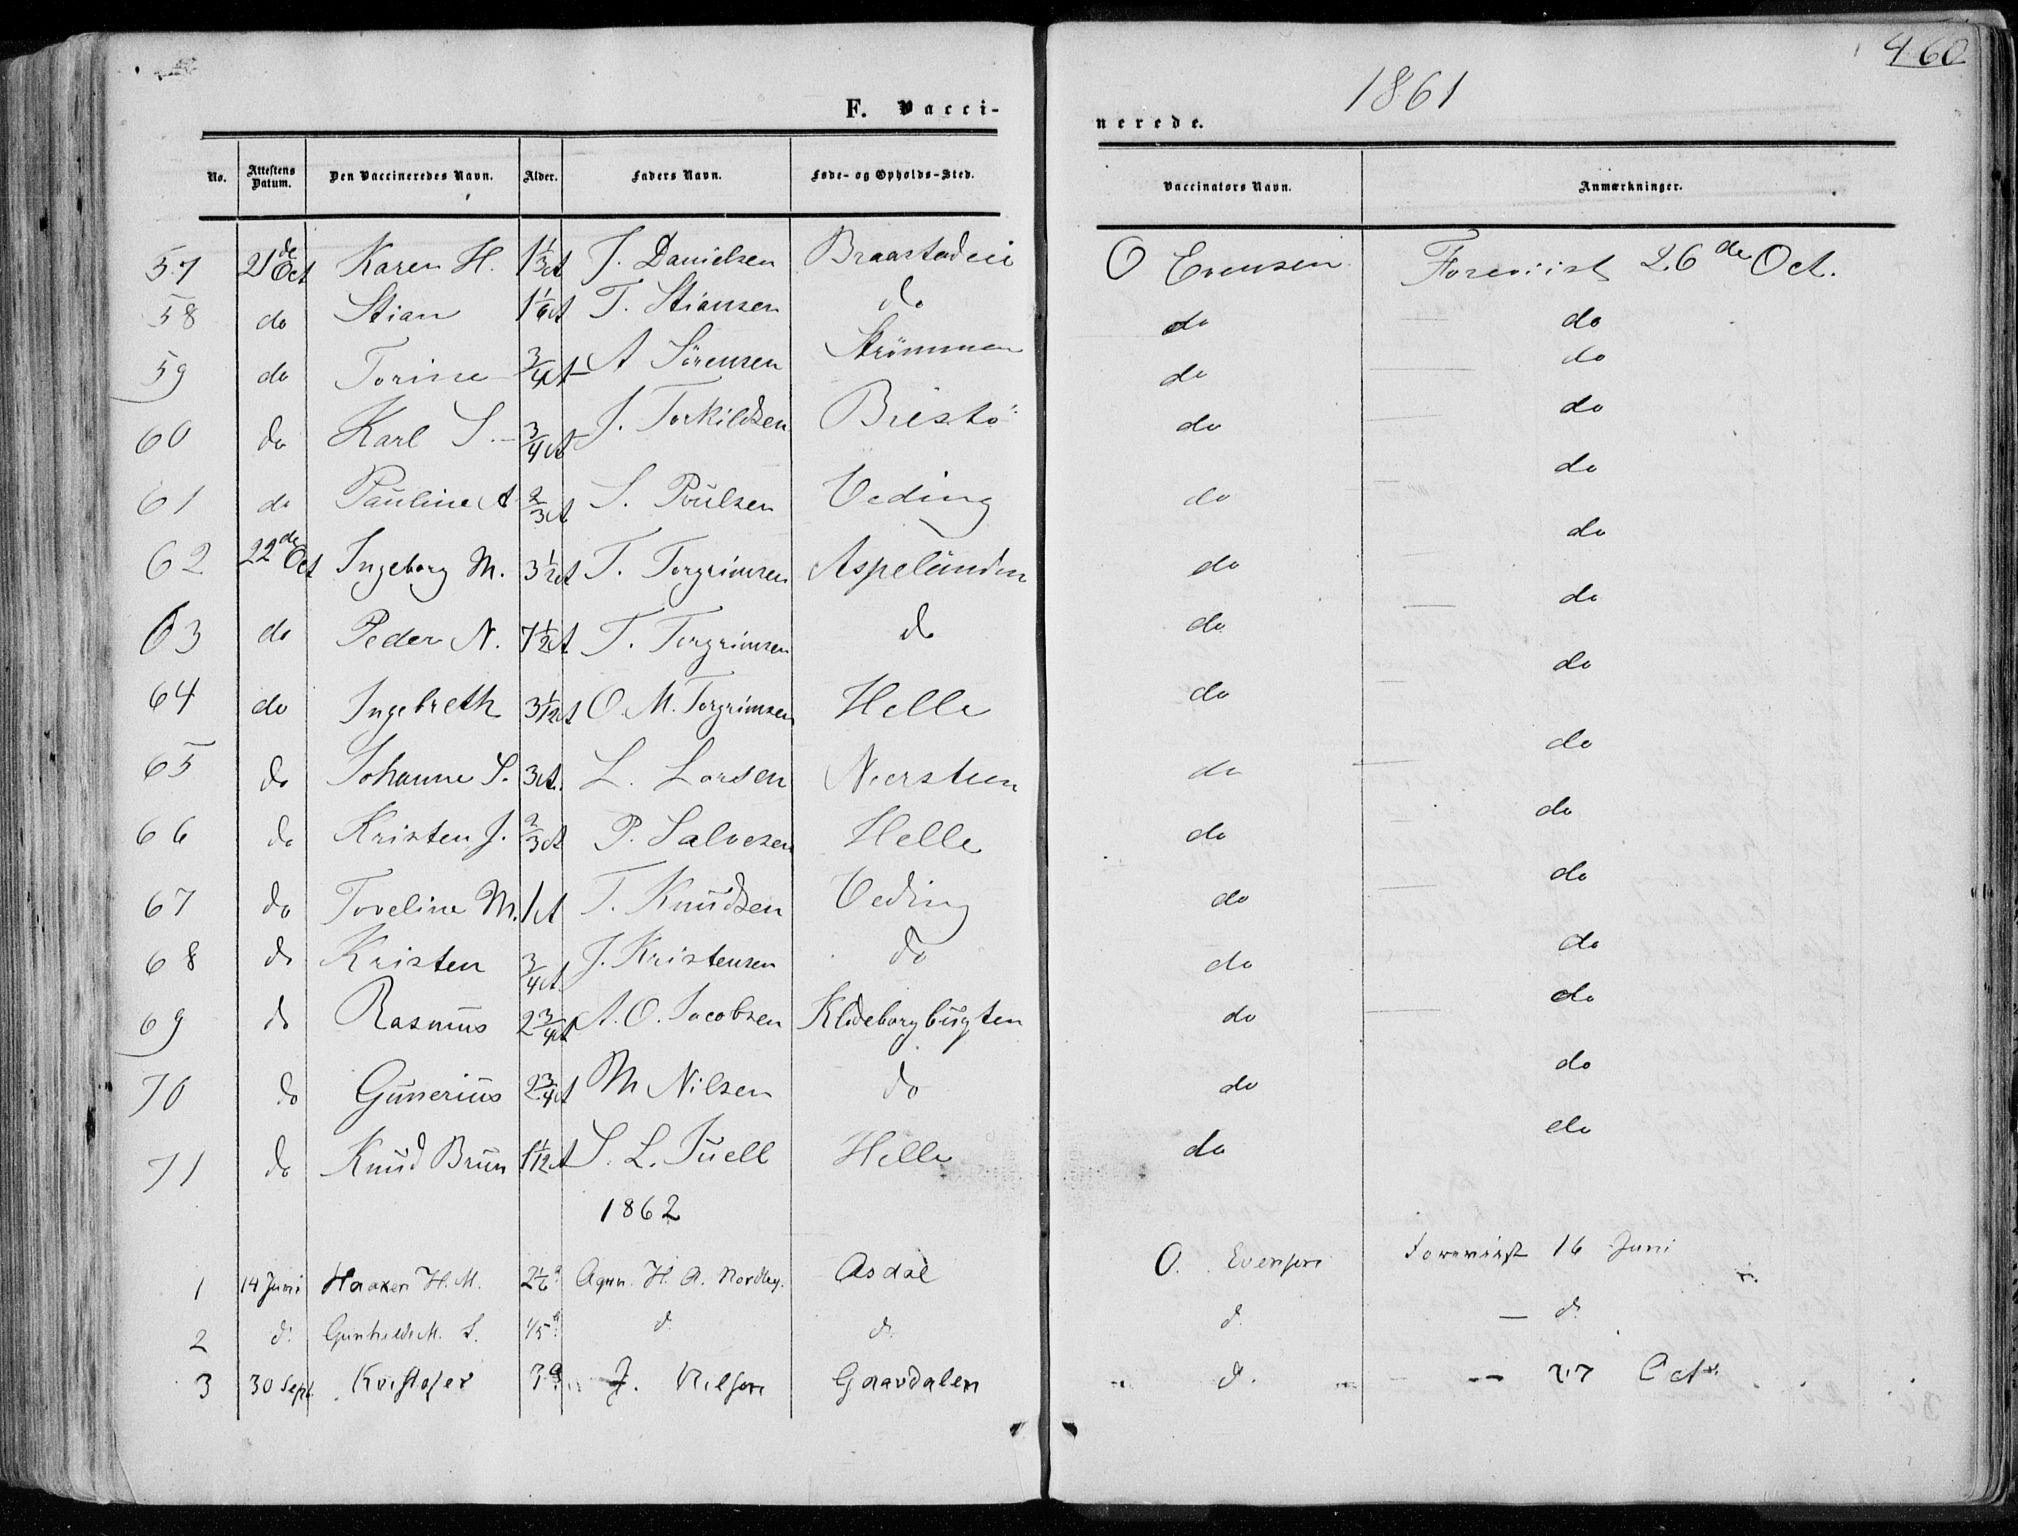 460
1861
F. Vacci-
nerede.
No. Attestens Datum. Den Vaccineredes Navn. Alder. Faders Navn. Føde- og Opholds-Sted. Vaccinators Navn. Anmærkninger.
57 21de Oct Karen H. 1 1/3 A J. Danielsen Braastadeie O Evensen Foreviist 26de Oct.
58 do Stian 1 1/6 A T. Stiansen do do do
59 do Torine 3/4 A A Sørensen Strømmen do do
60 do Karl S. 3/4 A J. Torkildsen Biestø do do
61 do Pauline A 2/3 A S. Poulsen Veding do do
62 22de Oct Ingeborg M. 3 1/2 A T. Torgrimsen Aspelunden do do
63 do Peder N. 7 1/2 A T. Torgrimsen do do do
64 do Ingebreth 3 1/12 A O. M. Torgrimsen Helle do do
65 do Johanne S. 3 A. L. Larsen Nersteen do do
66 do Kristen J. 2/3 A P. Salvesen Helle do do
67 do Toveline M. 1 A T. Knudsen Veding do do
68 do Kristen 3/4 A J. Kristensen do do do
69 do Rasmus 2 3/4 A A. O. Jacobsen Kldeborgbugten do do
70 do Gunerius 2 3/4 A M Nilsen do do do
71 do Knud Brun 1 1/12 A S. L. Juell Helle do do
1862
1 14 Juni Haaken H. M. 2 1/6 a H. A. Nordby. Asdal O. Evensen Foreviist 16 Juni
2 d. Gunhilde M. S. 1/5 a d. d. d. — d.
3 30 Sept. Kristofer 3 a J. Nilsen Gaardalen d. — 27 Oct.